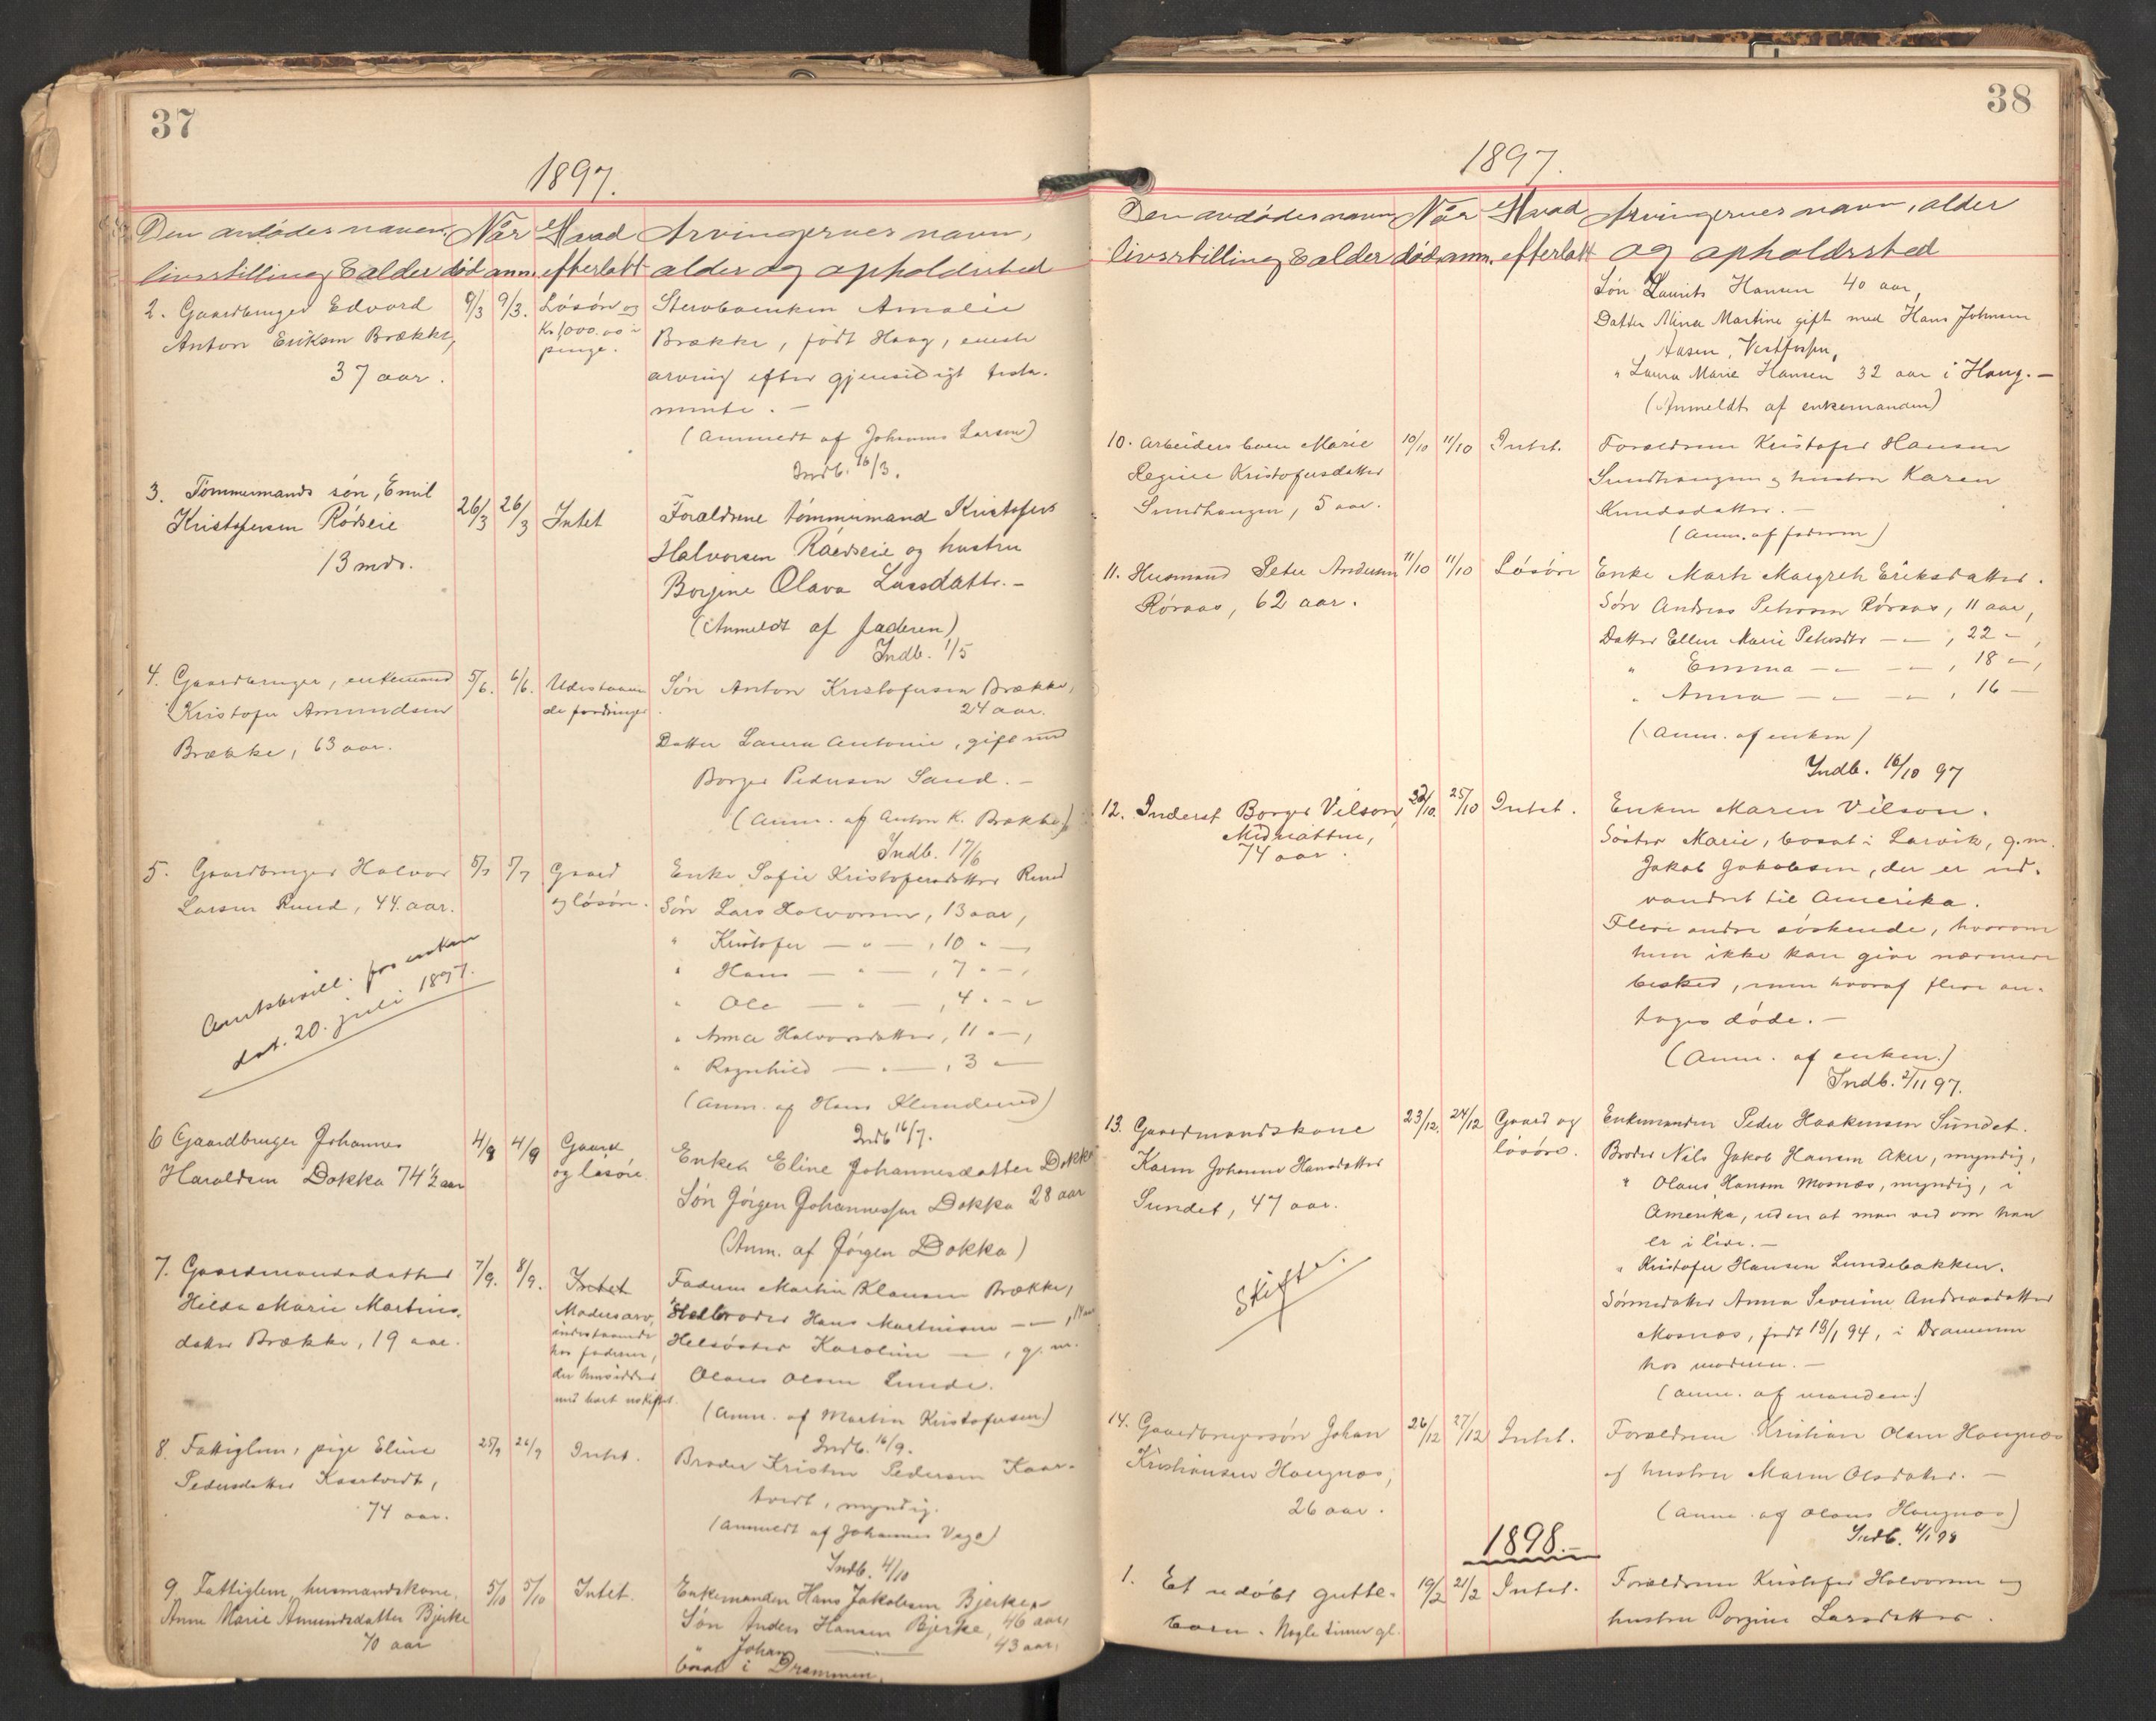 37
1897.
Den avdødes navn, Når Hvad Arvingernes navn,
livsstilling & alder død anm. efterlatt alder og opholdssted
2. Gaardbruger Edvard 9/3 9/3. Løsøre og Sterboenken Amalie
Anton Eriksen Brække, Kr. 1000.00 i Brække, født Haug, eneste
37 aar. penge. arving efter gjensidigt testa-
mente. —
(Anmeldt af Johannes Larsen)
Indb. 16/3.
3. Tømmermands søn, Emil 26/3 26/3 Intet Forældrene tømmermand Kristofer
Kristofersen Rødseie Halvorsen Raaseie og hustru
13 mdr. Borgine Olava Larsdattr. —
(Anmeldt af faderen)
Indb. 1/5
4. Gaardbruger, enkemand 5/6. 6/6. Udestaaen- Søn Anton Kristofersen Brække,
Kristofer Amundsen de fordringer 24 aar.
Brække, 63 aar. Datter Laura Antonie, gift med
Borger Pedersen Sand. —
(Anm. af Anton K. Brække)
Indb. 17/6
5. Gaardbruger Halvor 5/7 5/7 Gaard Enke Sofie Kristofersdatter Ruud
Larsen Ruud, 44 aar. og løsøre. Søn Lars Halvorsen, 13 aar,
" Kristofer — " —, 10 " —
" Hans — " —, 7 " —,
" Ole — " —, 4 " —
Amtsbevill. for enken
dat. 20. juli 1897.
" Anna Halvorsdatter, 11 " —,
" Ragnhild — " —, 3 " —
(Anm. af Hans Klunderud)
Indb 16/7.
6 Gaardbruger Johannes 4/9 4/9 Gaard Enken Eline Johannesdatter Dokka
Haraldsen Dokka 74 1/2 aar og løsøre. Søn Jørgen Johannessen Dokka 28 aar
(Anm. af Jørgen Dokka)
7. Gaardmandsdatter 7/9. 8/9. Intet Faderen Martin Klausen Brække,
Hilda Marie Martins- Modersarv, Helbroder Hans Martinsen — —,
datter Brække, 19 aar. indestaaende Helsøster Karoline — —, g. m.
hos faderen, Olaus Olsen Lunde.
der hensidder
med boet uskiftet. (Anm. af Martin Kristofersen)
Indb. 16/9.
8. Fattiglem, pige Eline 25/9 26/9 Intet. Broder Kristen Pedersen Kaar-
Pedersdatter Kaartvedt, tvedt, myndig.
74 aar. (Anmeldt af Johannes Vego)
Indb. 4/10
9. Fattiglem, husmandskone 5/10 5/10 Intet. Enkemanden Hans Jakobsen Bjerke,
Anne Marie Amundsdatter Bjerke Søn Anders Hansen Bjerke, 46 aar,
70 aar " Johan — 43 aar,
bosat i Drammen.
38
1897.
Den avdødes navn, Når Hvad Arvingernes navn, alder
livsstilling & alder død anm. efterlatt og opholdssted
Søn Laurits Hansen 40 aar,
Datter Alina Martine gift med Hans Johnsen
Aasen, Vestfossen,
" Laura Marie Hansen 32 aar i Haug. —
(Anmeldt af enkemanden)
10. Arbeiders barn Marie 10/10 11/10 Intet. Forældrene Kristofer Hansen
Regine Kristofersdatter Sundhaugen og hustru Karen
Sundhaugen, 5 aar. Knudsdatter. —
(Anm. af faderen)
11. Husmand Peter Andersen 11/10 11/10 Løsøre Enke Marte Margrete Eriksdatter.
Røraas, 62 aar. Søn Andreas Petersen Røraas, 11 aar,
Datter Ellen Marie Petersdtr — —, 22 —,
" Emma — " — —, 18 —,
" Anna — " — —, 16 —
(Anm. af enken)
Indb. 16/10 97
12. Inderst Borger Vilson, 23/10. 25/10 Intet. Enken Maren Vilson.
Midnatten, Søster Marie, bosat i Larvik, g. m.
74 aar. Jakob Jakobsen, der er ud-
vandret til Amerika.
Flere andre søskende, hvorom
hun ikke kan give nærmere
besked, men hvoraf flere an-
tages døde. —
(Anm. af enken.)
Indb. 2/11 97.
13. Gaardmandskone 23/12. 24/12 Gaard og Enkemanden Peder Haakensen Sundet.
Karen Johanne Hansdatter løsøre. Broder Nils Jakob Hansen Aker, myndig,
Sundet, 47 aar. " Olaus Hansen Mosnæs, myndig, i
Amerika, uden at man ved om han
er i live. —
Skifte.
" Kristofer Hansen Lundebakken.
Sønnedatter Anna Severine Andreasdatter
Mosnæs, født 19/1 94, i Drammen
hos moderen. —
(Anm. af manden.)
14. Gaardbrugersøn Johan 26/12 27/12 Intet. Forældrene Kristian Olsen Haugnæs
Kristiansen Haugnæs, og hustru Maren Olsdatter. —
26 aar. (Anm. af Olaus Haugnæs)
Indb. 4/1 98
1898.—
1. Et udøbt gutte- 19/2 21/2 Intet. Forældrene Kristofer Halvorsen og
barn. Nogle timer gl. hustru Borgine Larsdatter.